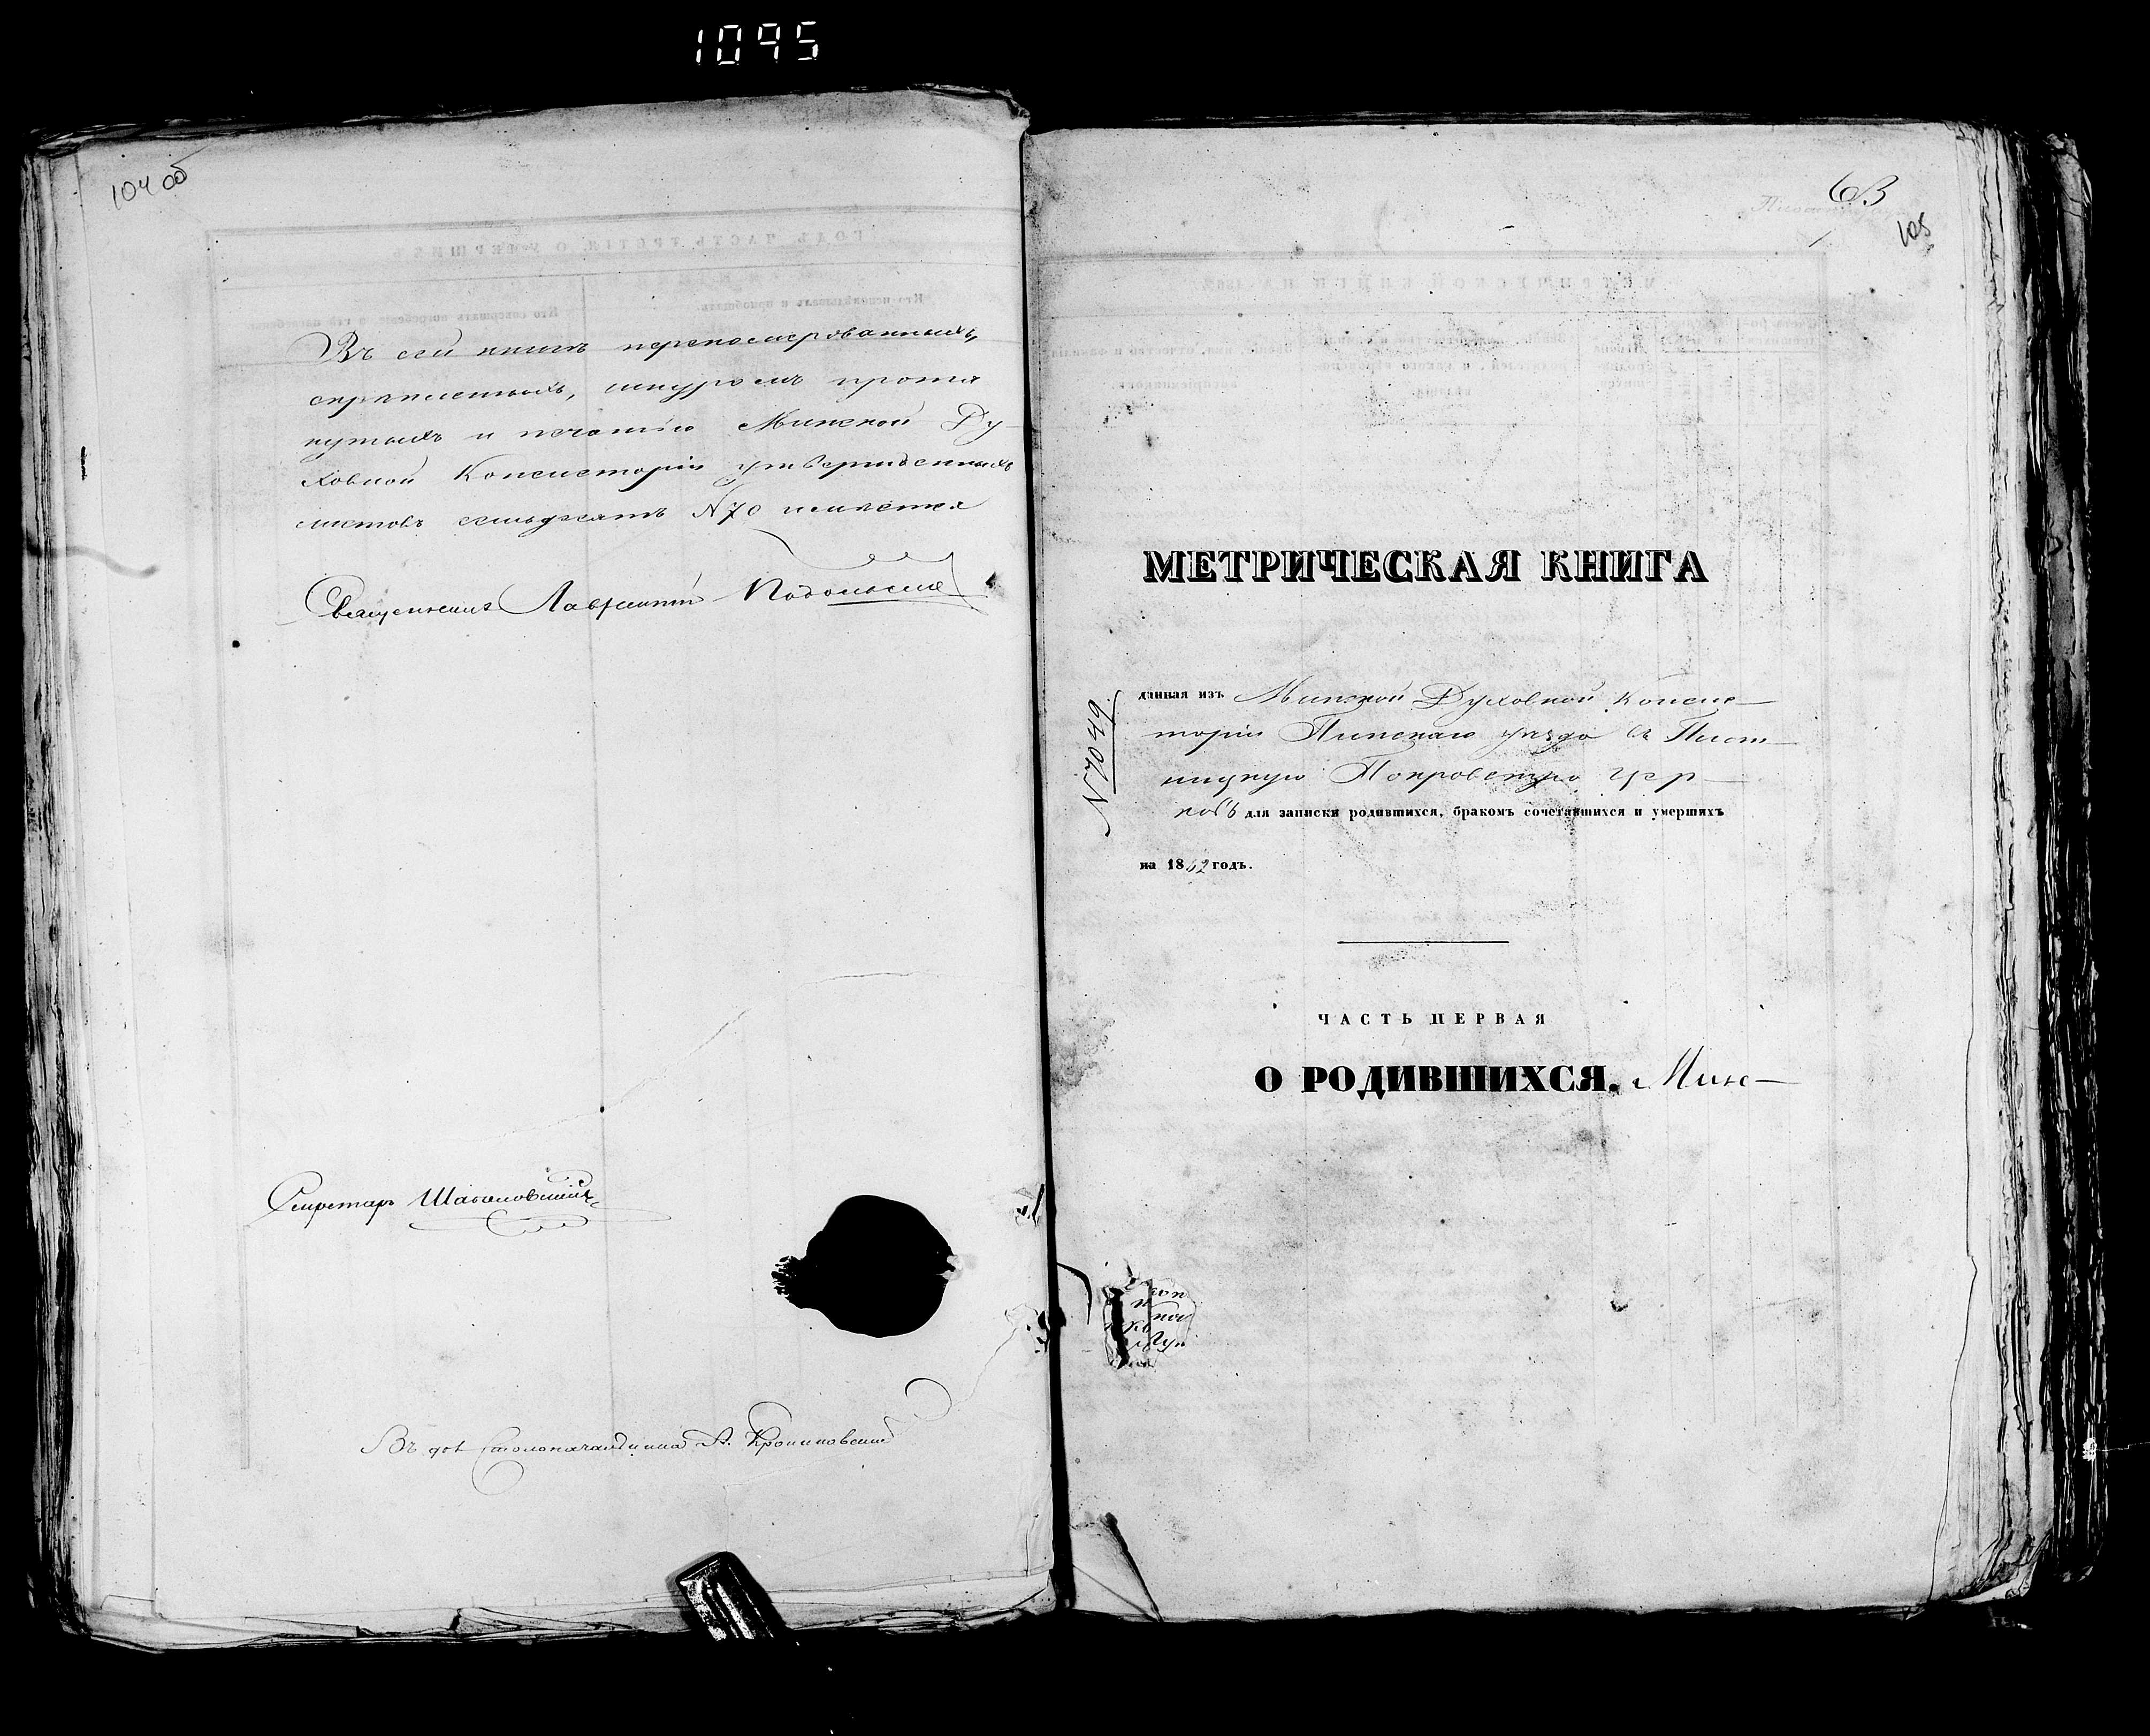 1095
104 об
Въ сей книгѣ перенумерованныхъ,
скрѣпленныхъ, шнуромъ протя
нутыхъ и печатію Минской Ду-
ховной Консисторіи утвержденныхъ
листовъ семьдесятъ N 70 имѣется
Священникъ Лаврентій
Секретарь
Въ дол Столоначальника А.
105
МЕТРИЧЕСКАЯ КНИГА
N 7049.
данная изъ Минской Духовной Консис-
торіи Пинскаго уѣзда въ
Покровскую цер-
ковь для записки родившихся, бракомъ сочетавшихся и умершихъ
на 1862 годъ.
ЧАСТЬ ПЕРВАЯ
О РОДИВШИХСЯ. Минс-